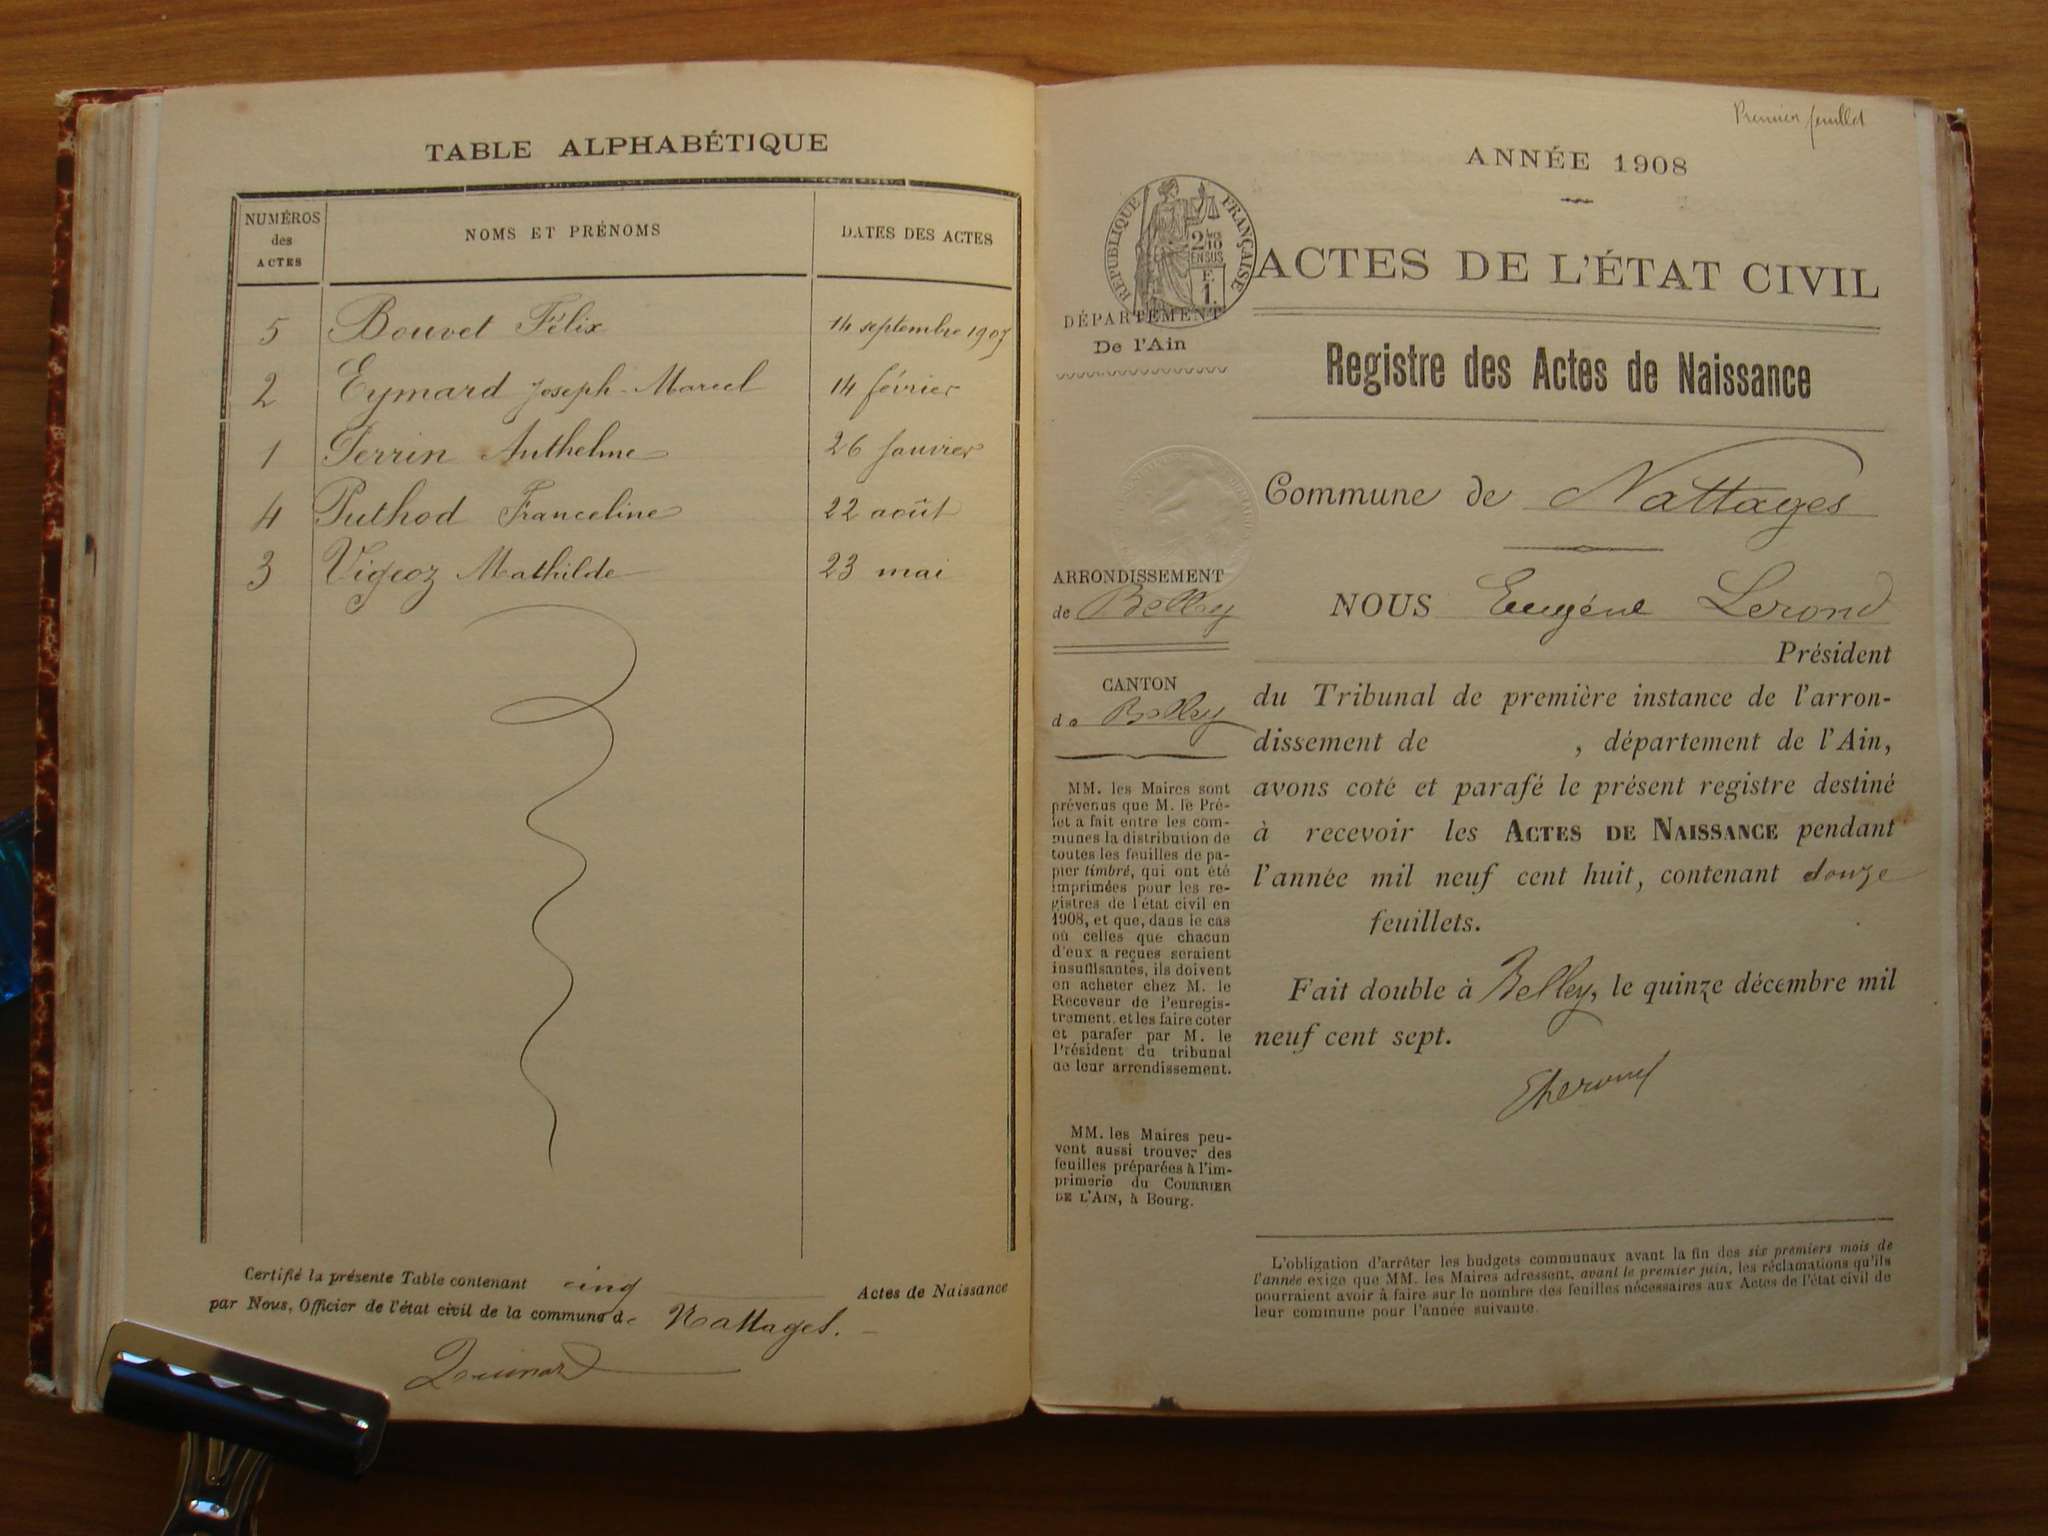 TABLE ALPHABÉTIQUE
NUMÉROS
des
ACTES
NOMS ET PRÉNOMS
DATES DES ACTES
5 Bouvet Félix 14 septembre 1907
2 Eymard Joseph-Marcel 14 février
1 Perrin Anthelme 26 Janvier
4 Puthod Franceline 22 août
3 Vigeoz Mathilde 23 mai
Certifié la présente Table contenant cinq Actes de Naissance
par Nous, Officier de l'état civil de la commune de Nattages.
Premier feuillet
ANNÉE 1908
RÉPUBLIQUE FRANÇAISE
2/10
EN SUS
F.
1.
ACTES DE L'ÉTAT CIVIL
DÉPARTEMENT
De l'Ain
Registre des Actes de Naissance
Commune de Nattages
ARRONDISSEMENT
de Belley
CANTON
de Belley
MM. les Maires sont
prévenus que M. le Pré-
fet a fait entre les com-
munes la distribution de
toutes les feuilles de pa-
pier timbré, qui ont été
imprimées pour les re-
gistres de l'état civil en
1908, et que, dans le cas
où celles que chacun
d'eux a reçues seraient
insuffisantes, ils doivent
en acheter chez M. le
Receveur de l'enregis-
trement, et les faire coter
et parafer par M. le
Président du tribunal
de leur arrondissement.
MM. les Maires peu-
vent aussi trouver des
feuilles préparées à l'im-
primerie du COURRIER
DE L'AIN, à Bourg.
NOUS Eugène Lerond
Président
du Tribunal de première instance de l'arron-
dissement de , département de l'Ain,
avons coté et parafé le présent registre destiné
à recevoir les ACTES DE NAISSANCE pendant
l'année mil neuf cent huit, contenant douze
feuillets.
Fait double à Belley, le quinze décembre mil
neuf cent sept.
L'obligation d'arrêter les budgets communaux avant la fin des six premiers mois de
l'année exige que MM. les Maires adressent, avant le premier juin, les réclamations qu'ils
pourraient avoir à faire sur le nombre des feuilles nécessaires aux Actes de l'état civil de
leur commune pour l'année suivante.